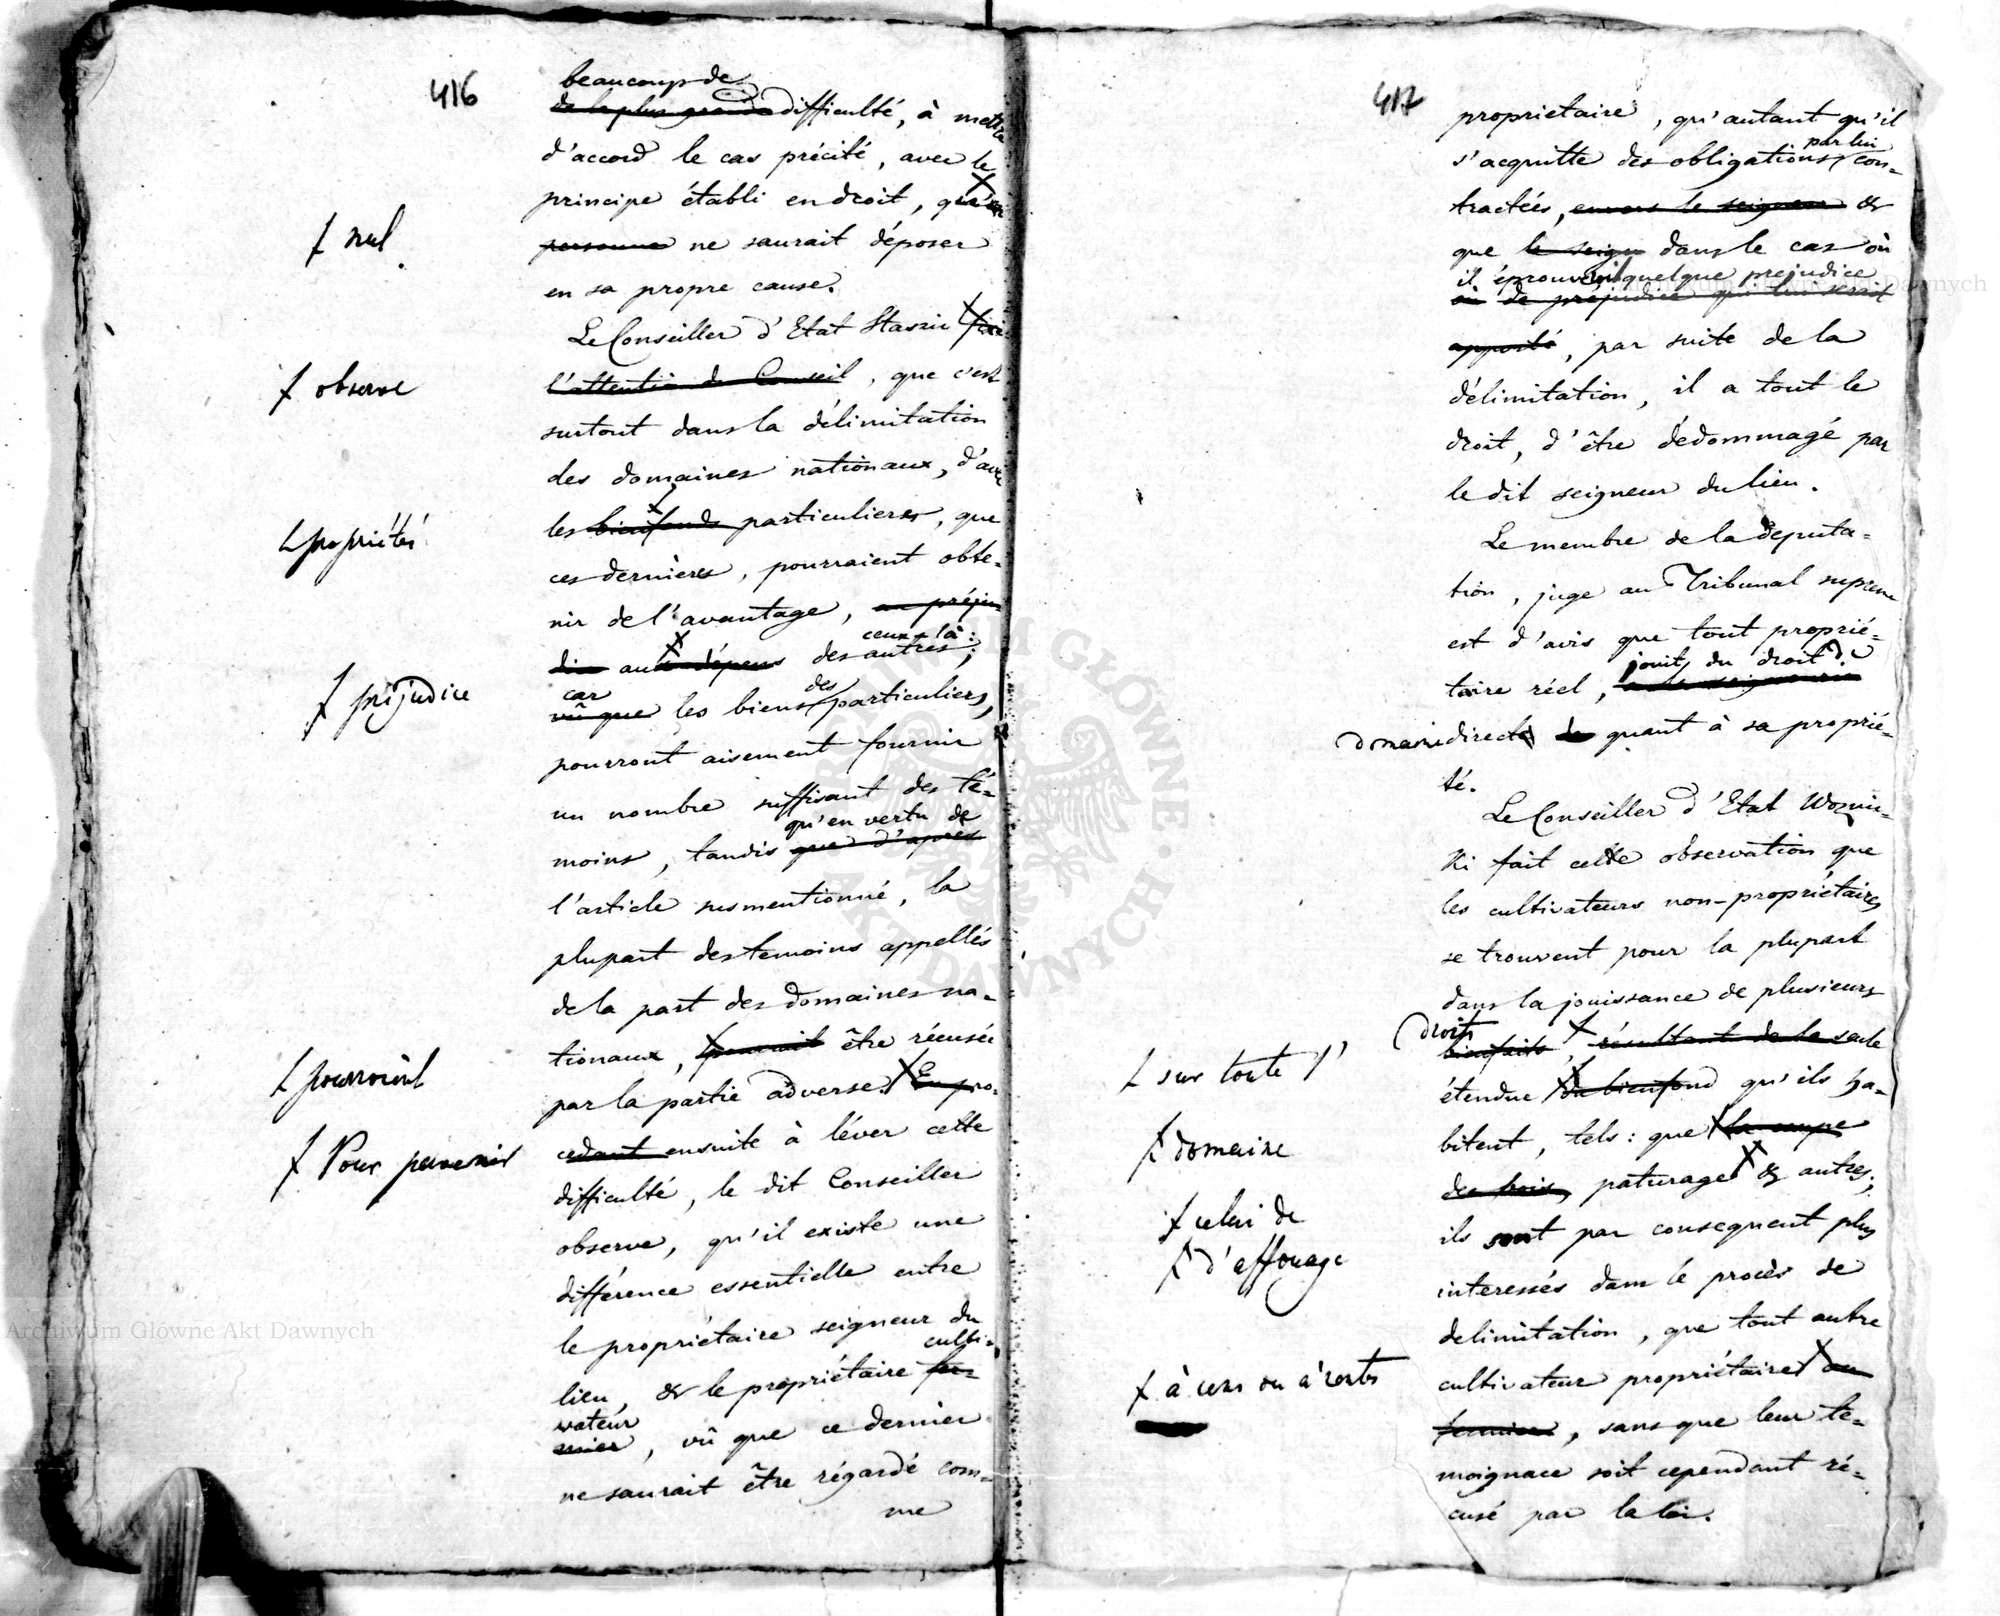 416
beaucoup de
de la plus grande difficulté, à mettre
d'accord le cas précité, avec le
principe établi en droit, qu'un
ꝉ nul
personne ne saurait déposer
en sa propre cause.
Le Conseiller d'Etat Staszic
ꝉ observe
l'attention du Conseil, que c'est
surtout dans la délimitation
des domaines nationaux, d'avec
ꝉ propriétés
les bienfonds particulieres, que
ces dernières, pourraient obte-
nir de l'avantage, au préju
ceux-là:
dice aux dépens des autres;
ꝉ préjudice
car des
vû que les biens particuliers,
pourront aisement fournir
un nombre suffisant des té-
qu'en vertu de
moins, tandis que d'après
l'article susmentionné, la
plupart des temoins appellés
de la part des domaines na-
ꝉ pourroient
tionaux, pourrait être récusée
par la partie adverse. En pro-
ꝉ Pour parvenir
cedant ensuite à léver cette
difficulté, le dit Conseiller
observe, qu'il existe une
différence essentielle entre
le propriétaire seigneur du
culti-
lieu, & le propriétaire fer-
vateur
mier, vû que ce dernier
ne saurait être régardé com-
me
417
proprietaire, qu'autant qu'il
par lui
s'acquitte des obligations con-
tractées, envers le seigneur &
que le seign dans le cas où
il éprouverait quelque prejudice
où de prejudice qui lui serait
apporté, par suite de la
délimitation, il a tout le
droit, d'être dédommagé par
le dit seigneur du lieu.
Le membre de la deputa-
tion, juge au Tribunal suprême
est d'avis que tout proprié-
jouit, du droit de
taire réel, a la seigneurie
domaine directe de quant à sa proprié-
té.
Le Conseiller d'Etat Woznic-
Ki fait cette observation que
les cultivateurs non-propriétaires
se trouvent pour la plupart
dans la jouissance de plusieurs
droits
bienfaits, résultant de la seule
ꝉ sur toute l'
étendue du bienfond qu'ils ha-
ꝉ domaine
bitent, tels: que la coupe
des bois, paturage & autres;
ꝉ celui de
ils sont par consequent plus
ꝉ d'affouage
interessés dans le procès de
delimitation, que tout autre
ꝉ à cens ou à rentes
cultivateur propriétaire ou
fermier, sans que leur te-
moignace soit cependant ré-
cusé par la loi.
Archiwum Główne Akt Dawnych
Archiwum Główne Akt Dawnych
ARCHIWUM GŁÓWNE · AKT DAWNYCH ·